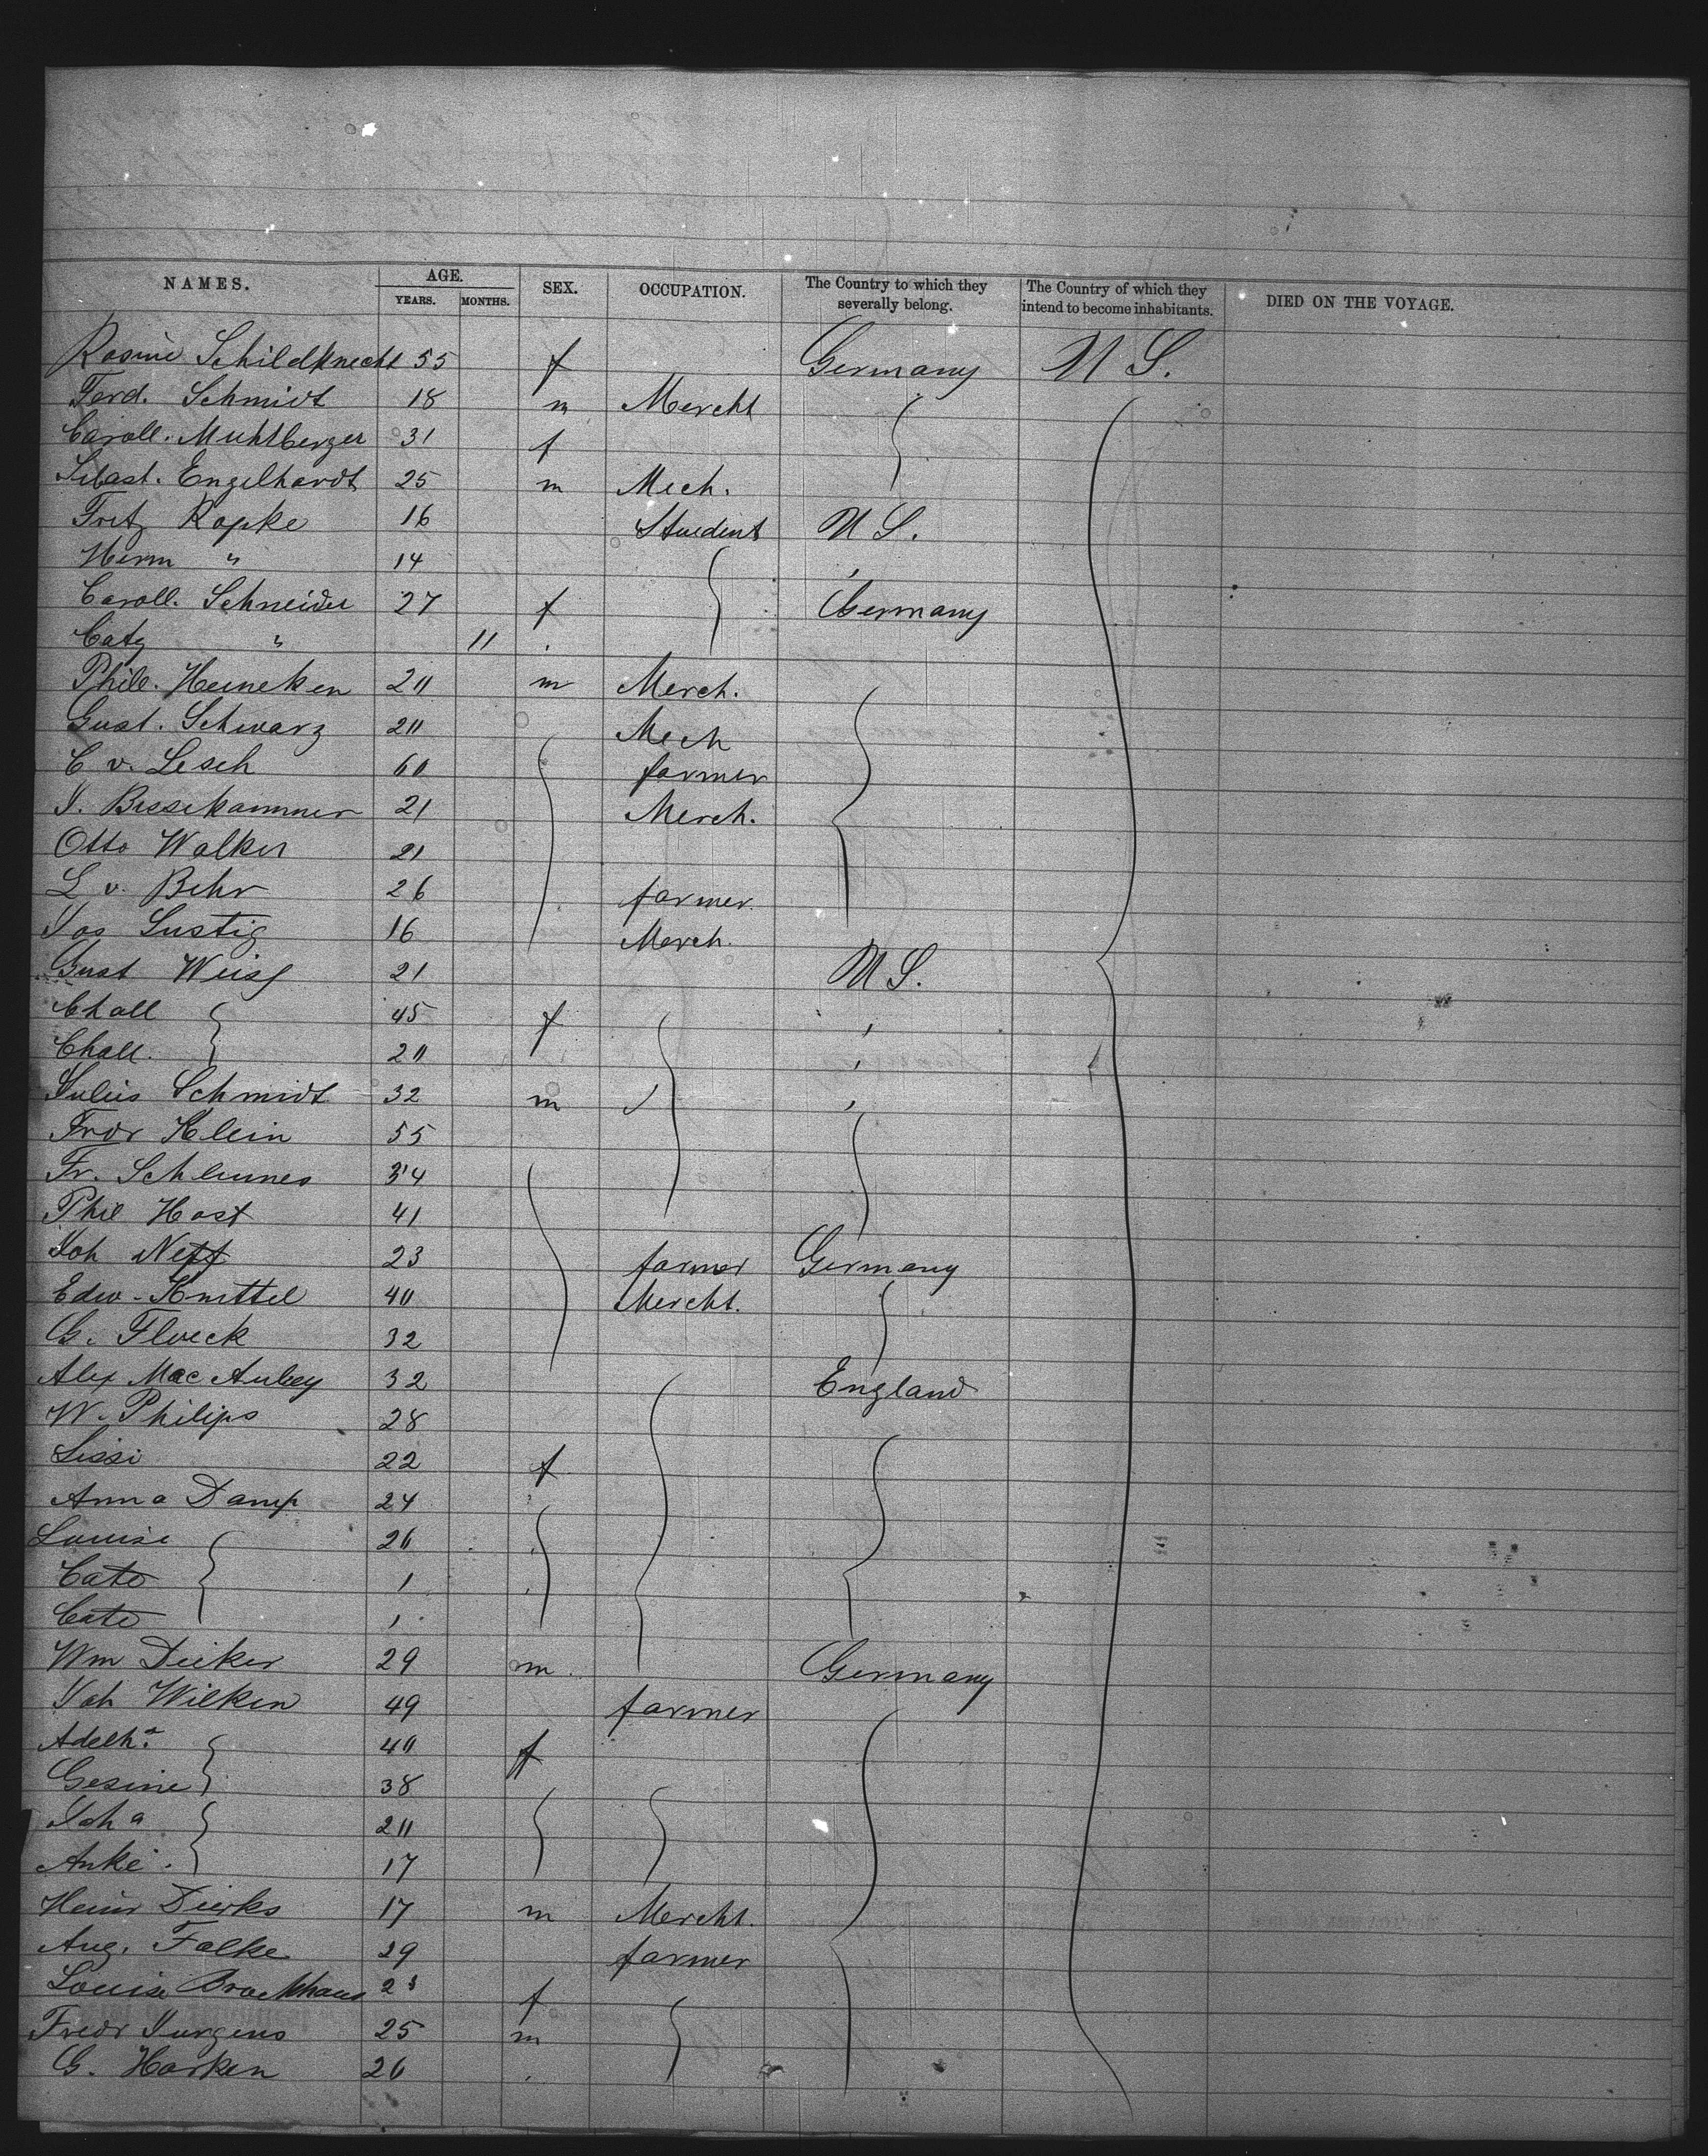 NAMES. AGE. SEX. OCCUPATION. The Country to which they severally belong. The Country of which they intend to become inhabitants. DIED ON THE VOYAGE.
YEARS. MONTHS.
Rosine Schildknecht 55 f Germany U S.
Ferd. Schmidt 18 m Mercht
Caroll. Muhlberger 31 f
Sebast. Engelhardt 25 m Mech.
Fritz Ropke 16 Student U S.
Herm " 14 "
Caroll. Schneider 27 f Germany
Caty " 11
Phil. Heineken 20 m Merch.
Gust. Schwarz 20 Mech
C v. Lesch 60 farmer
J. Bessekammer 21 Merch.
Otto Walker 21
L v. Behr 26 farmer.
Jos Lustig 16 Merch.
Gust Weiss 21 U S.
Chall 45 f "
Chall. 20 "
Julius Schmidt 32 m "
Fror Klein 55
Fr. Schlumes 34
Phil Host 41
Joh Neff 23 farmer Germany
Edw. Knittel 40 Mercht.
G. Floeck 32
Alex Mac Aubey 32 England
W. Philips 28
Lissi 22 f
Anna Damp 24
Louise 26
Cato 1
Cato 1
Wm Deeker 29 m Germany
Joh Wilken 49 farmer
Adelha 40 f
Gesine 38
Joha 20
Anke 17
Heinr Dierks 17 m Mercht.
Aug. Falke 29 farmer
Louise Brockhaus f
Fredr Jurgens 25 m
G. Harken 26